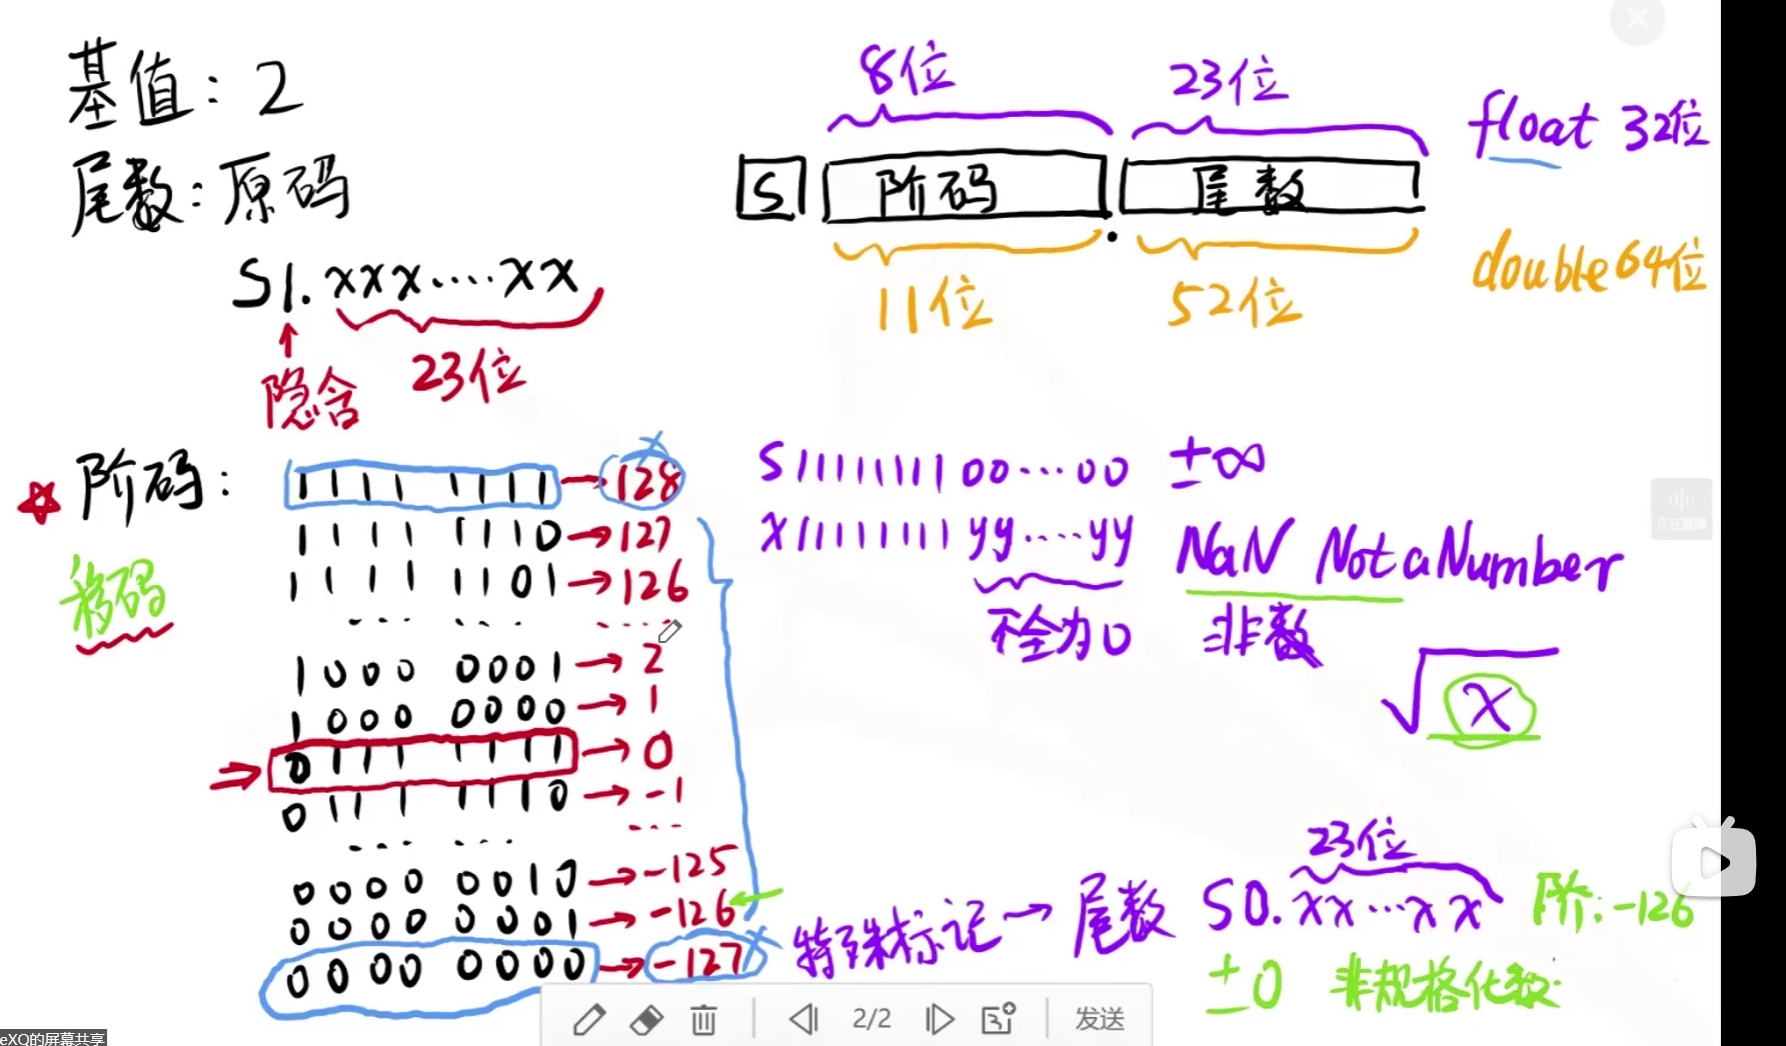 基值: 2
尾数: 原码
S1.xxx....xx
隐含
23位
8位
23位
float 32位
S 阶码 . 尾数
11位
52位
double 64位
阶码:
移码
1111 1111 → 128
1111 1110 → 127
1111 1101 → 126
... ... ....
1000 0001 → 2
1000 0000 → 1
0111 1111 → 0
0111 1110 → -1
... ... ...
0000 0010 → -125
0000 0001 → -126
0000 0000 → -127
S 11111111 00...00 ±∞
X 11111111 yy....yy NaN Not a Number
不全为0 非数
√x
23位
特殊标记 → 尾数 S0.xx...xx 阶:-126
±0 非规格化数
正在直播
2/2
发送
eXQ的屏幕共享